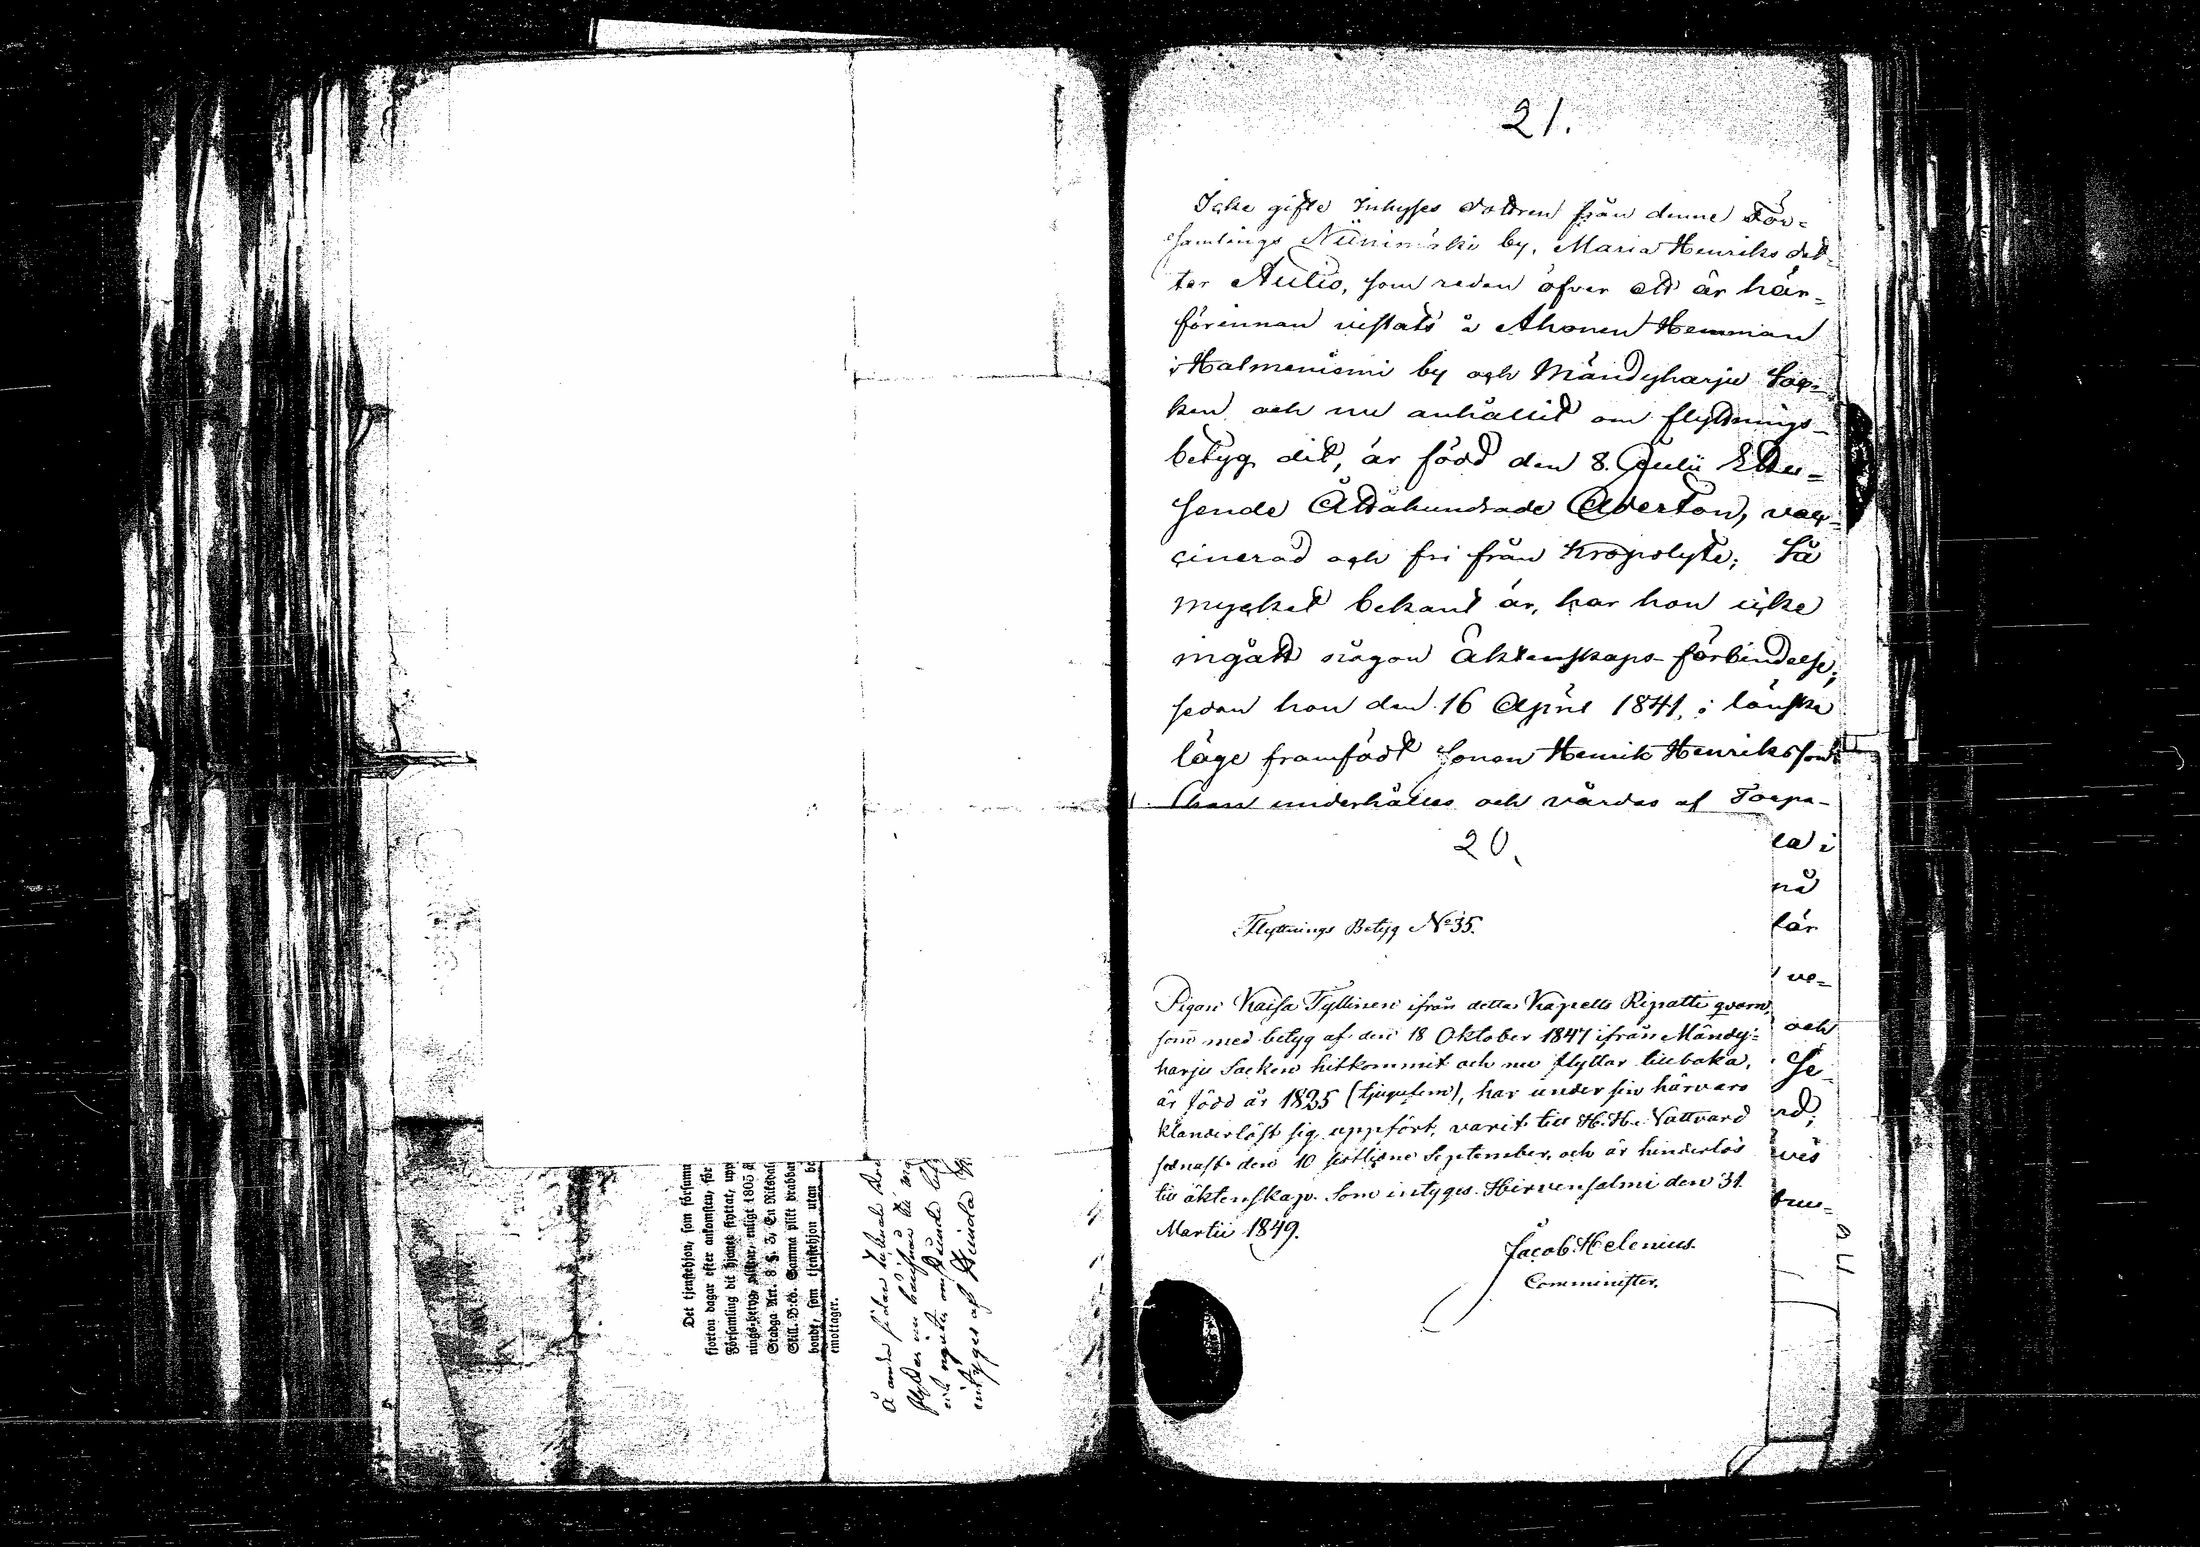 21.
Icke gifte Inhyses dottren från denne För-
samlings Niinimäki by, Maria Henriks dot-
ter Aulio, som redan öfver ett år här-
förinnan vistats å Ahonen Hemman
i Halmeniemi by och Mändyharju Soc-
ken och nu anhållit om flyttnings-
betyg dit, är född den 8. Julii Ettu-
sende Åttahundrade Aderton, vac-
cinerad och fri från Kroppslyte; Så
mycket bekant är, har hon icke
ingått någon Äktenskaps-förbindelse,
sedan hon den 16 April 1841, i lönska
läge framfödt Sonen Henrik Henriksson;
han underhålles och vårdas af Torpa-
la i
nå
lär
ve-
och
Se-
rd,
vis
20.
Flyttnings Betyg No 35.
Pigan Kaisa Tyllinen ifrån detta Kapells Ripatti qvarn,
som med betyg af den 18 Oktober 1847 ifrån Mändy-
harju Socken hitkommit och nu flyttar tillbaka,
är född år 1825 (tjugufem), har under sin härvaro
klanderlöst sig uppfört, varit till H. H. Nattvard
senast den 10 sistlidne September, och är hinderlös
till äktenskap. Som intygas. Hirvensalmi den 31.
Martii 1849.
Jacob Helenius.
Comminister.
Det tjenstehjon, som försumm
fjorton dagar efter ankomsten, för
Församling dit hjonet flyttat, upp
nings-betyg pliktar, enligt 1805 å
Stadga Art. 8. §. 3, En Riksdal
Skill. B:co. Samma plikt drabbar
bonde, som tjenstehjon utan be
emottager.
Å andra sidan
flyttar nu
intygas af